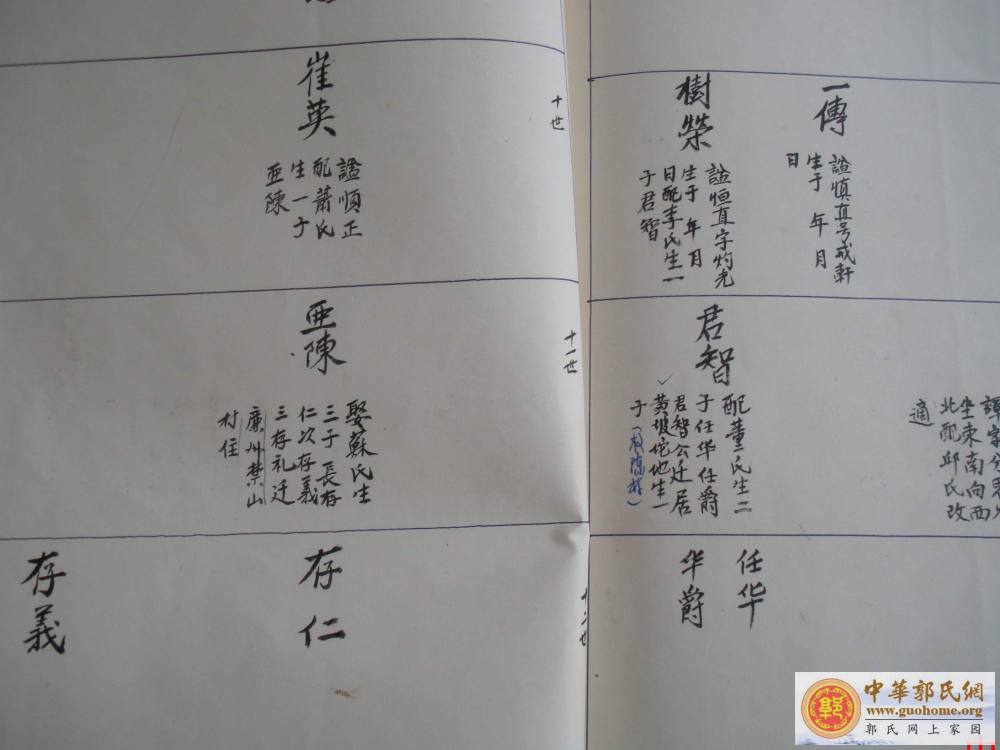 一傳
諡慎直号戒軒
生于 年 月
日
樹榮
諡恒直字灼光
生于 年 月
日配李氏生一
子君智
十世
崔英
諡順正
配蕭氏
生一子
亜陳
北配邱氏改
適
君智
配董氏生二
子任华任爵
君智公迁居
黃坡坨地生一
子
十一世
亜陳
娶蘇氏生
三子長存
仁次存義
三存礼迁
廣州禁山
村住
任华
华爵
十二世
存仁
存義
中華郭氏網
www.guohome.org
郭氏网上家园